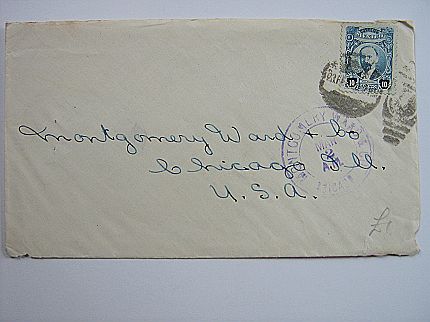 10 10
Montgomery Ward & Co
Chicago Ill.
U.S.A.
MONTGOMERY WARD
MAR
£1